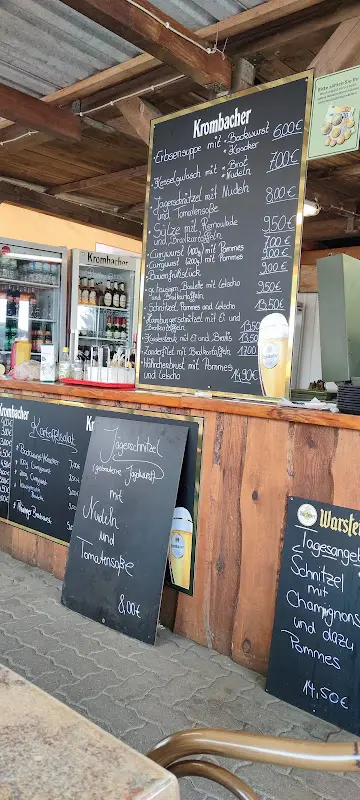 Krombacher
Erbsensuppe mit • Bockwurst 6,00€
• Knacker
Kesselgulasch mit • Brot 7,00€
• Nudeln
Jägerschnitzel mit Nudeln 8,00€
und Tomatensoße
Sülze mit Remoulade 9,50€
und Bratkartoffeln
Currywurst (100g) mit Pommes 7,00€
Currywurst (200g) mit Pommes 9,00€
Bauernfrühstück 9,00€
gr. hausgem. Boulette mit Letscho 9,50€
und Bratkartoffeln
Schnitzel mit Letscho 13,50€
und Pommes
Hamburgerschnitzel mit Ei und 13,50€
Bratkartoffeln
mit Ei und Bratk.
Zanderfilet mit Bratkartoffeln 17,00
Hähnchenbrust mit Pommes 14,90€
und Letscho
Krombacher
Krombacher
Kartoffelsalat
Jägerschnitzel
(gebratene Jagdwurst)
mit
Nudeln
und
Tomatensoße
8,00€
Warste
Tagesangeb
Schnitzel
mit
Champignons
und dazu
Pommes
14,50€